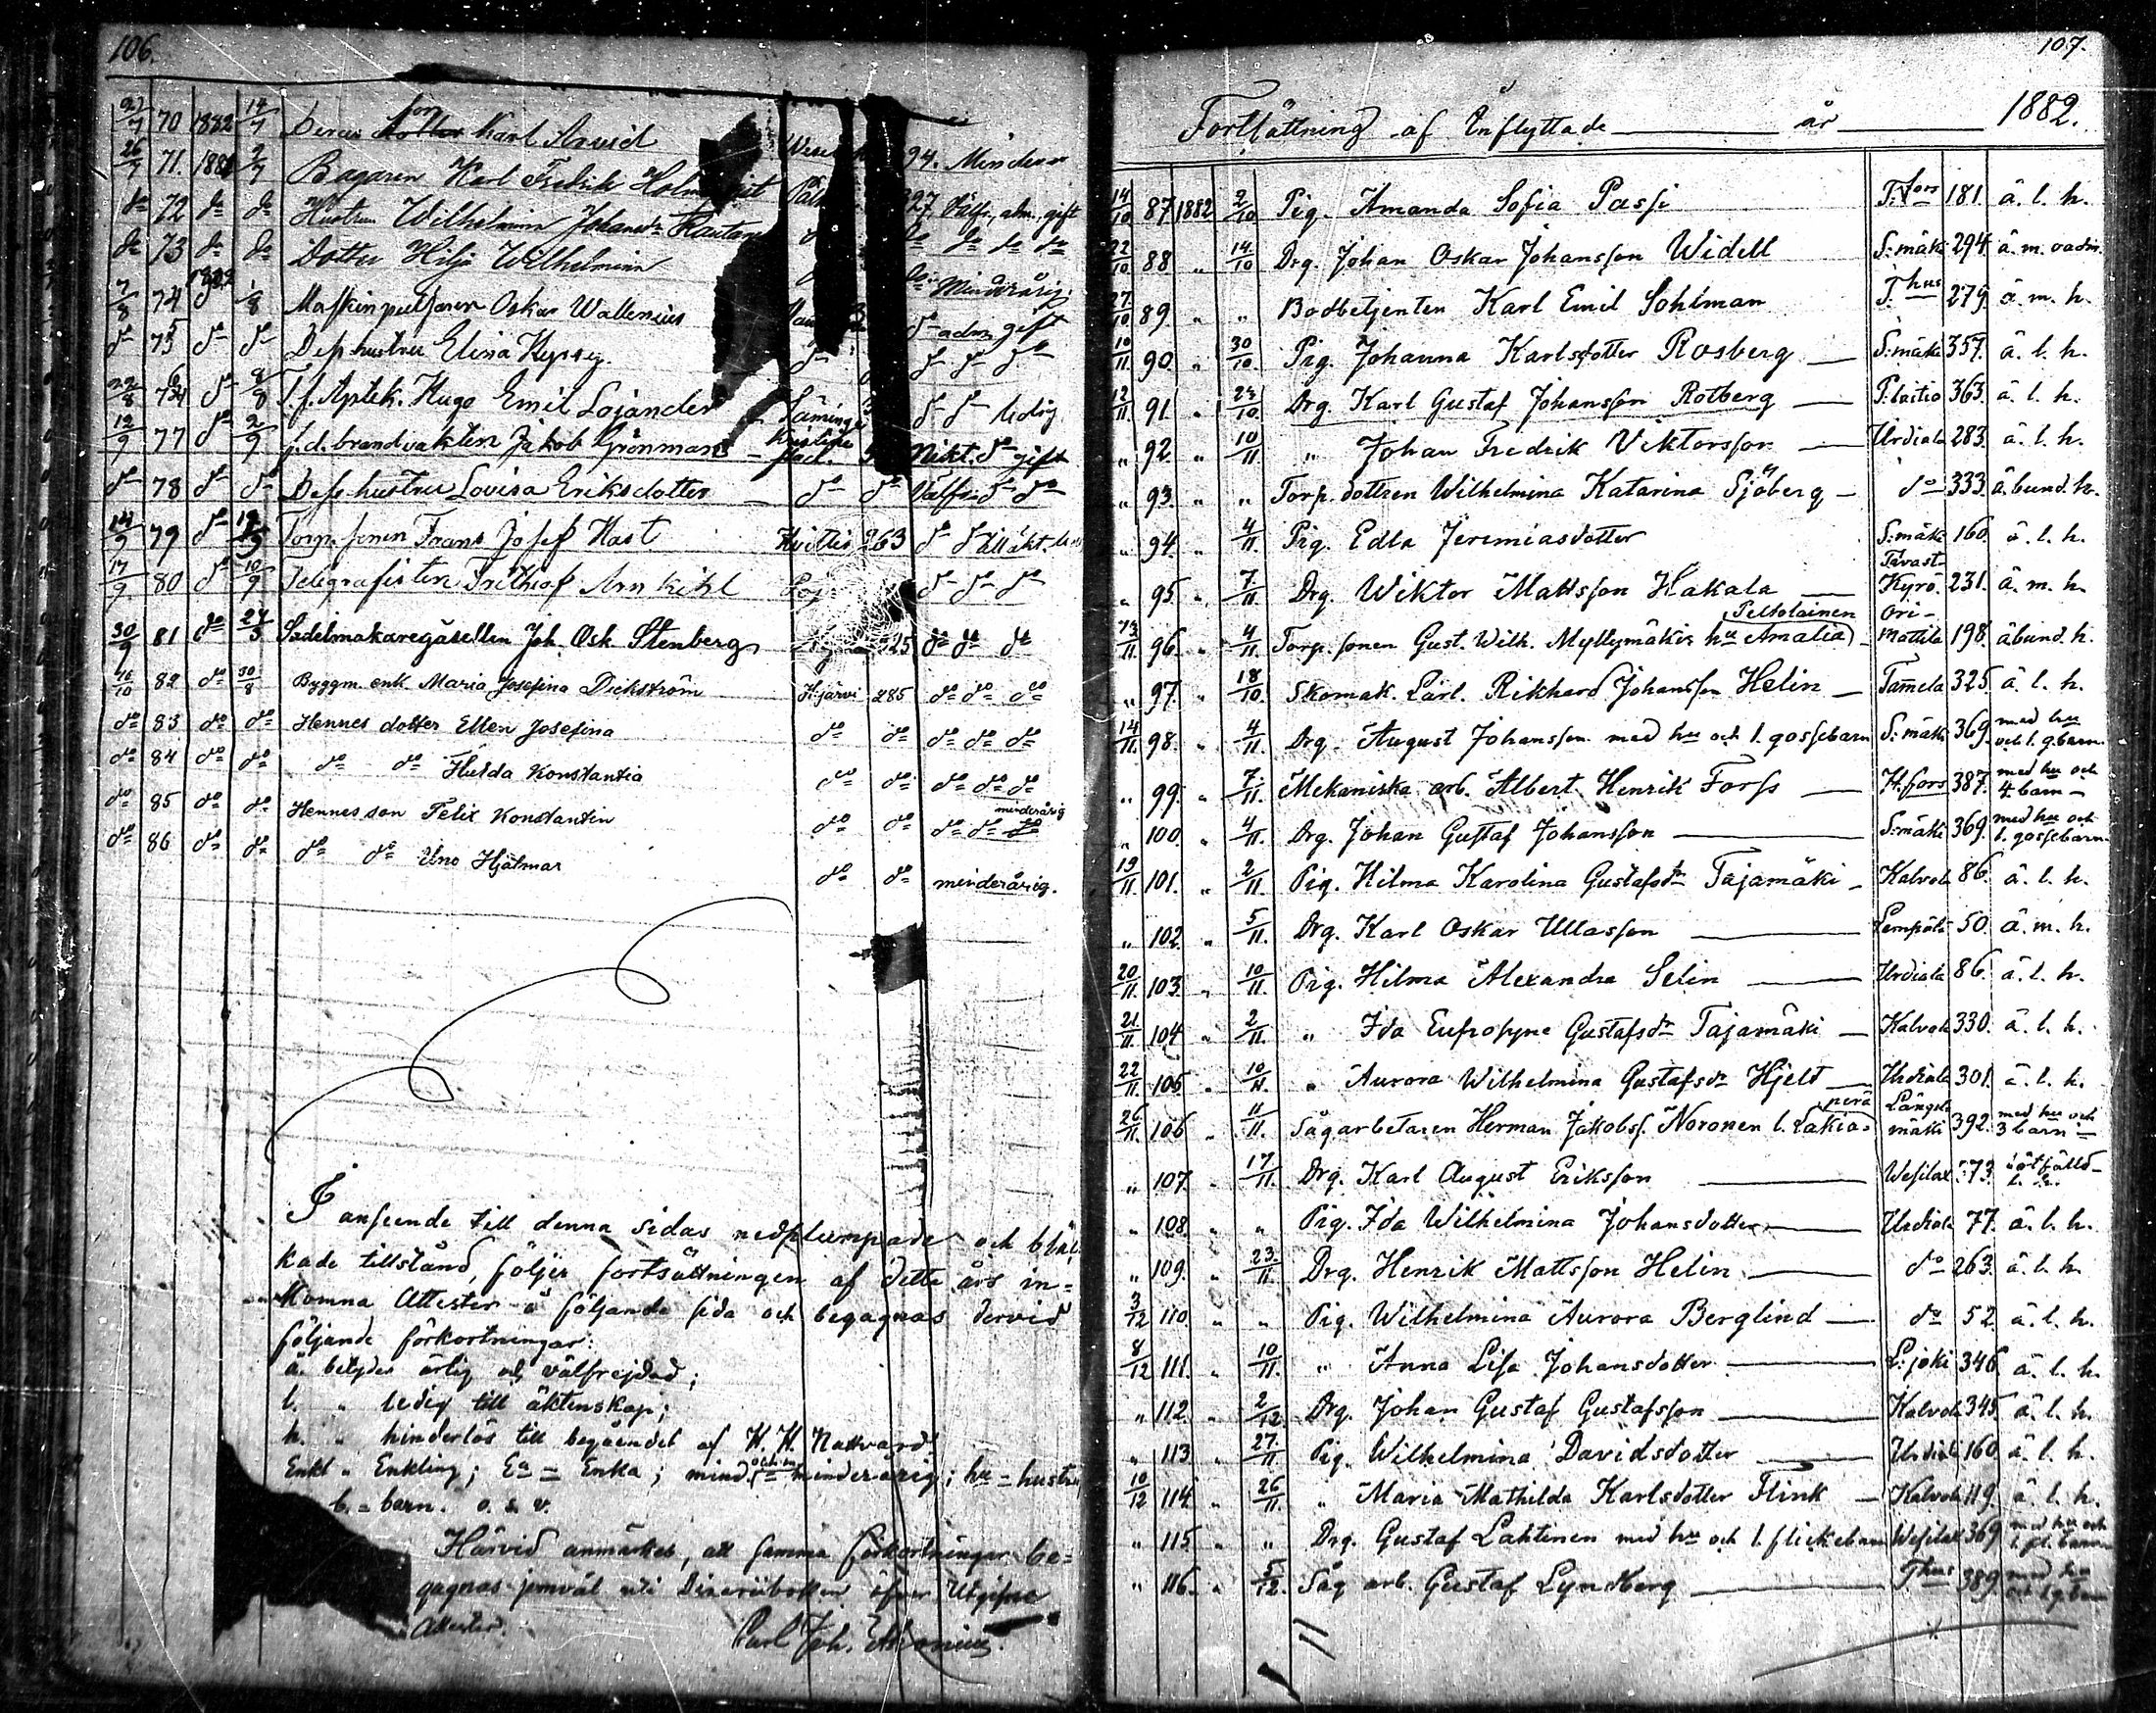 106.
27/7 70 1882 14/7 Deras son Karl Arvid 94. Minder
26/7 71. 188 2/7 Bagaren Karl Fredrik Holm 327. Välfr., adm., gift
do 72 do do Hustrun Wilhelmina Johansdr Rautan do do do do
do 73 do do Dotter Hilja Wilhelmina do Minderårig.
7/8 74 1882 1/8 Maskinputsaren Oskar Wallenius do adm gift
do 75 do do Dess hustru Elina do do do do
22/8 76 do 8/8 T. f. Aptek. Hugo Emil Lojander Säminge do do ledig
12/9 77 do 2/9 f. d. brandvakten Jakob Grönman Kristine stad. Nikt. do gift
do 78 do do Dess hustru Lovisa Eriksdotter do do Välfr. do do
14/9 79 do 12/9 Torp. sonen Frans Josef Hast Huittis 263 do do till äkt. led
17/9 80 do 10/9 Telegrafisten Frithiof Arnkihl do do do
30/9 81 do 24/3 Sadelmakaregesällen Joh. Osk. Stenberg 325 do do do
16/10 82 do 30/8 Byggm. enk. Maria Josefina Dickström Hjärvi 285 do do do
do 83 do do Hennes dotter Ellen Josefina do do do do do
do 84 do do do do Hulda Konstantia do do do do do
do 85 do do Hennes son Felix Konstantin do do do do minderårig
do 86 do do do do Uno Hjalmar do do minderårig.
I anseende till denna sidas nedplumpade och bläc
kade tillstånd, följer fortsättningen af detta års in=
komna Attester å följande sida och begagnas dervid
följande förkortningar:
ä. betyder ärlig och välfrejdad;
l. " ledig till äktenskap;
h. " hinderlös till begående af H. H. Nattvard
Enkl " Enkling; Ea = Enka; mind. = minderårig; hu = hustru
b. = barn. o. s. v.
Härvid anmärkes, att samma förkortningar be=
gagnas jemväl uti Diarieboken öfver Utgifne
Attester.
Carl Joh.
107.
Fortsättning af Inflyttade år 1882.
14/10 87 1882 2/10 Pig. Amanda Sofia Passi T:fors 181. ä. l. h.
22/10 88 " 14/10 Drg. Johan Oskar Johansson Widell S:mäki 294. ä. m. oadm.
27/10 89. " " Bodbetjenten Karl Emil Sohlman T:hus 279. ä. m. h.
10/11 90. " 30/10 Pig. Johanna Karlsdotter Rosberg S:mäki 357. ä. l. h.
12/11 91. " 23/10. Drg. Karl Gustaf Johansson Rotberg P:laitio 363. ä. l. h.
" 92. " 10/11 " Johan Fredrik Viktorsson Urdiala 283. ä. l. h.
" 93. " " Torp. dottren Wilhelmina Katarina Sjöberg do 333. ä. bund. h.
" 94. " 4/11. Pig. Edla Jeremiasdotter S:mäki 160. ä. l. h.
" 95. " 7/11 Drg. Wiktor Mattsson Hakala Tavast-Kyrö. 231. ä. m. h.
13/11 96. " 4/11 Torp. sonen Gust. Wilh. Myllymäkis hu Amalia Peltolainen Ori-mattila 198. ä bund. h.
" 97. " 18/10. Skomak. Lärl. Rikhard Johansson Helin Tamela 325. ä. l. h.
14/11 98. " 4/11. Drg. August Johansson med hu och 1. gossebarn S:mäki 369. med hu och 1. g. barn
" 99. " 7/11. Mekaniska arb. Albert Henrik Forss H:fors 387. med hu och 4. barn
" 100. " 4/11 Drg. Johan Gustaf Johansson S:mäki 369. med hu och 1. gossebarn
19/11 101. " 2/11 Pig. Hilma Karolina Gustafsdr Tajamäki Kalvola 86. ä. l. h.
" 102. " 5/11. Drg. Karl Oskar Ullasson Lempälä 50. ä. m. h.
20/11 103. " 10/11. Pig. Hilma Alexandra Selin Urdiala 86. ä. l. h.
21/11. 104 " 2/11. " Ida Eufrosyne Gustafsdr Tajamäki Kalvola 330. ä. l. h.
22/11. 105. " 10/11 " Aurora Wilhelmina Gustafsdr Hjelt Urdiala 301. ä. l. h.
26/11. 106 " 11/11. Sågarbetaren Herman Jakobs. Noronen l. Lakiasperä Längelmäki 392. med hu och 3 barn
" 107. " 17/11. Drg. Karl August Eriksson Wesilax 373.
" 108. " " Pig. Ida Wilhelmina Johansdotter Urdiala 77. ä. l. h.
" 109. " 23/11. Drg. Henrik Mattsson Helin do 263. ä. l. h.
3/12 110. " " Pig. Wilhelmina Aurora Berglind do 52. ä. l. h.
8/12 111. " 10/11. " Anna Lisa Johansdotter L:joki 346. ä. l. h.
" 112. " 2/12 Drg. Johan Gustaf Gustafsson Kalvola 345. ä. l. h.
" 113. " 27/11 Pig. Wilhelmina Davidsdotter Urdiala 160. ä. l. h.
10/12 114. " 26/11. " Maria Mathilda Karlsdotter Flink Kalvola 119. ä. l. h.
" 115. " " Drg. Gustaf Lahtinen med hu och 1. flickebarn Wesilax 369. med hu och 1. fl. barn
" 116. " 5/12. Såg arb. Gustaf Lyndberg T:hus 389. med hu och 1 g. barn